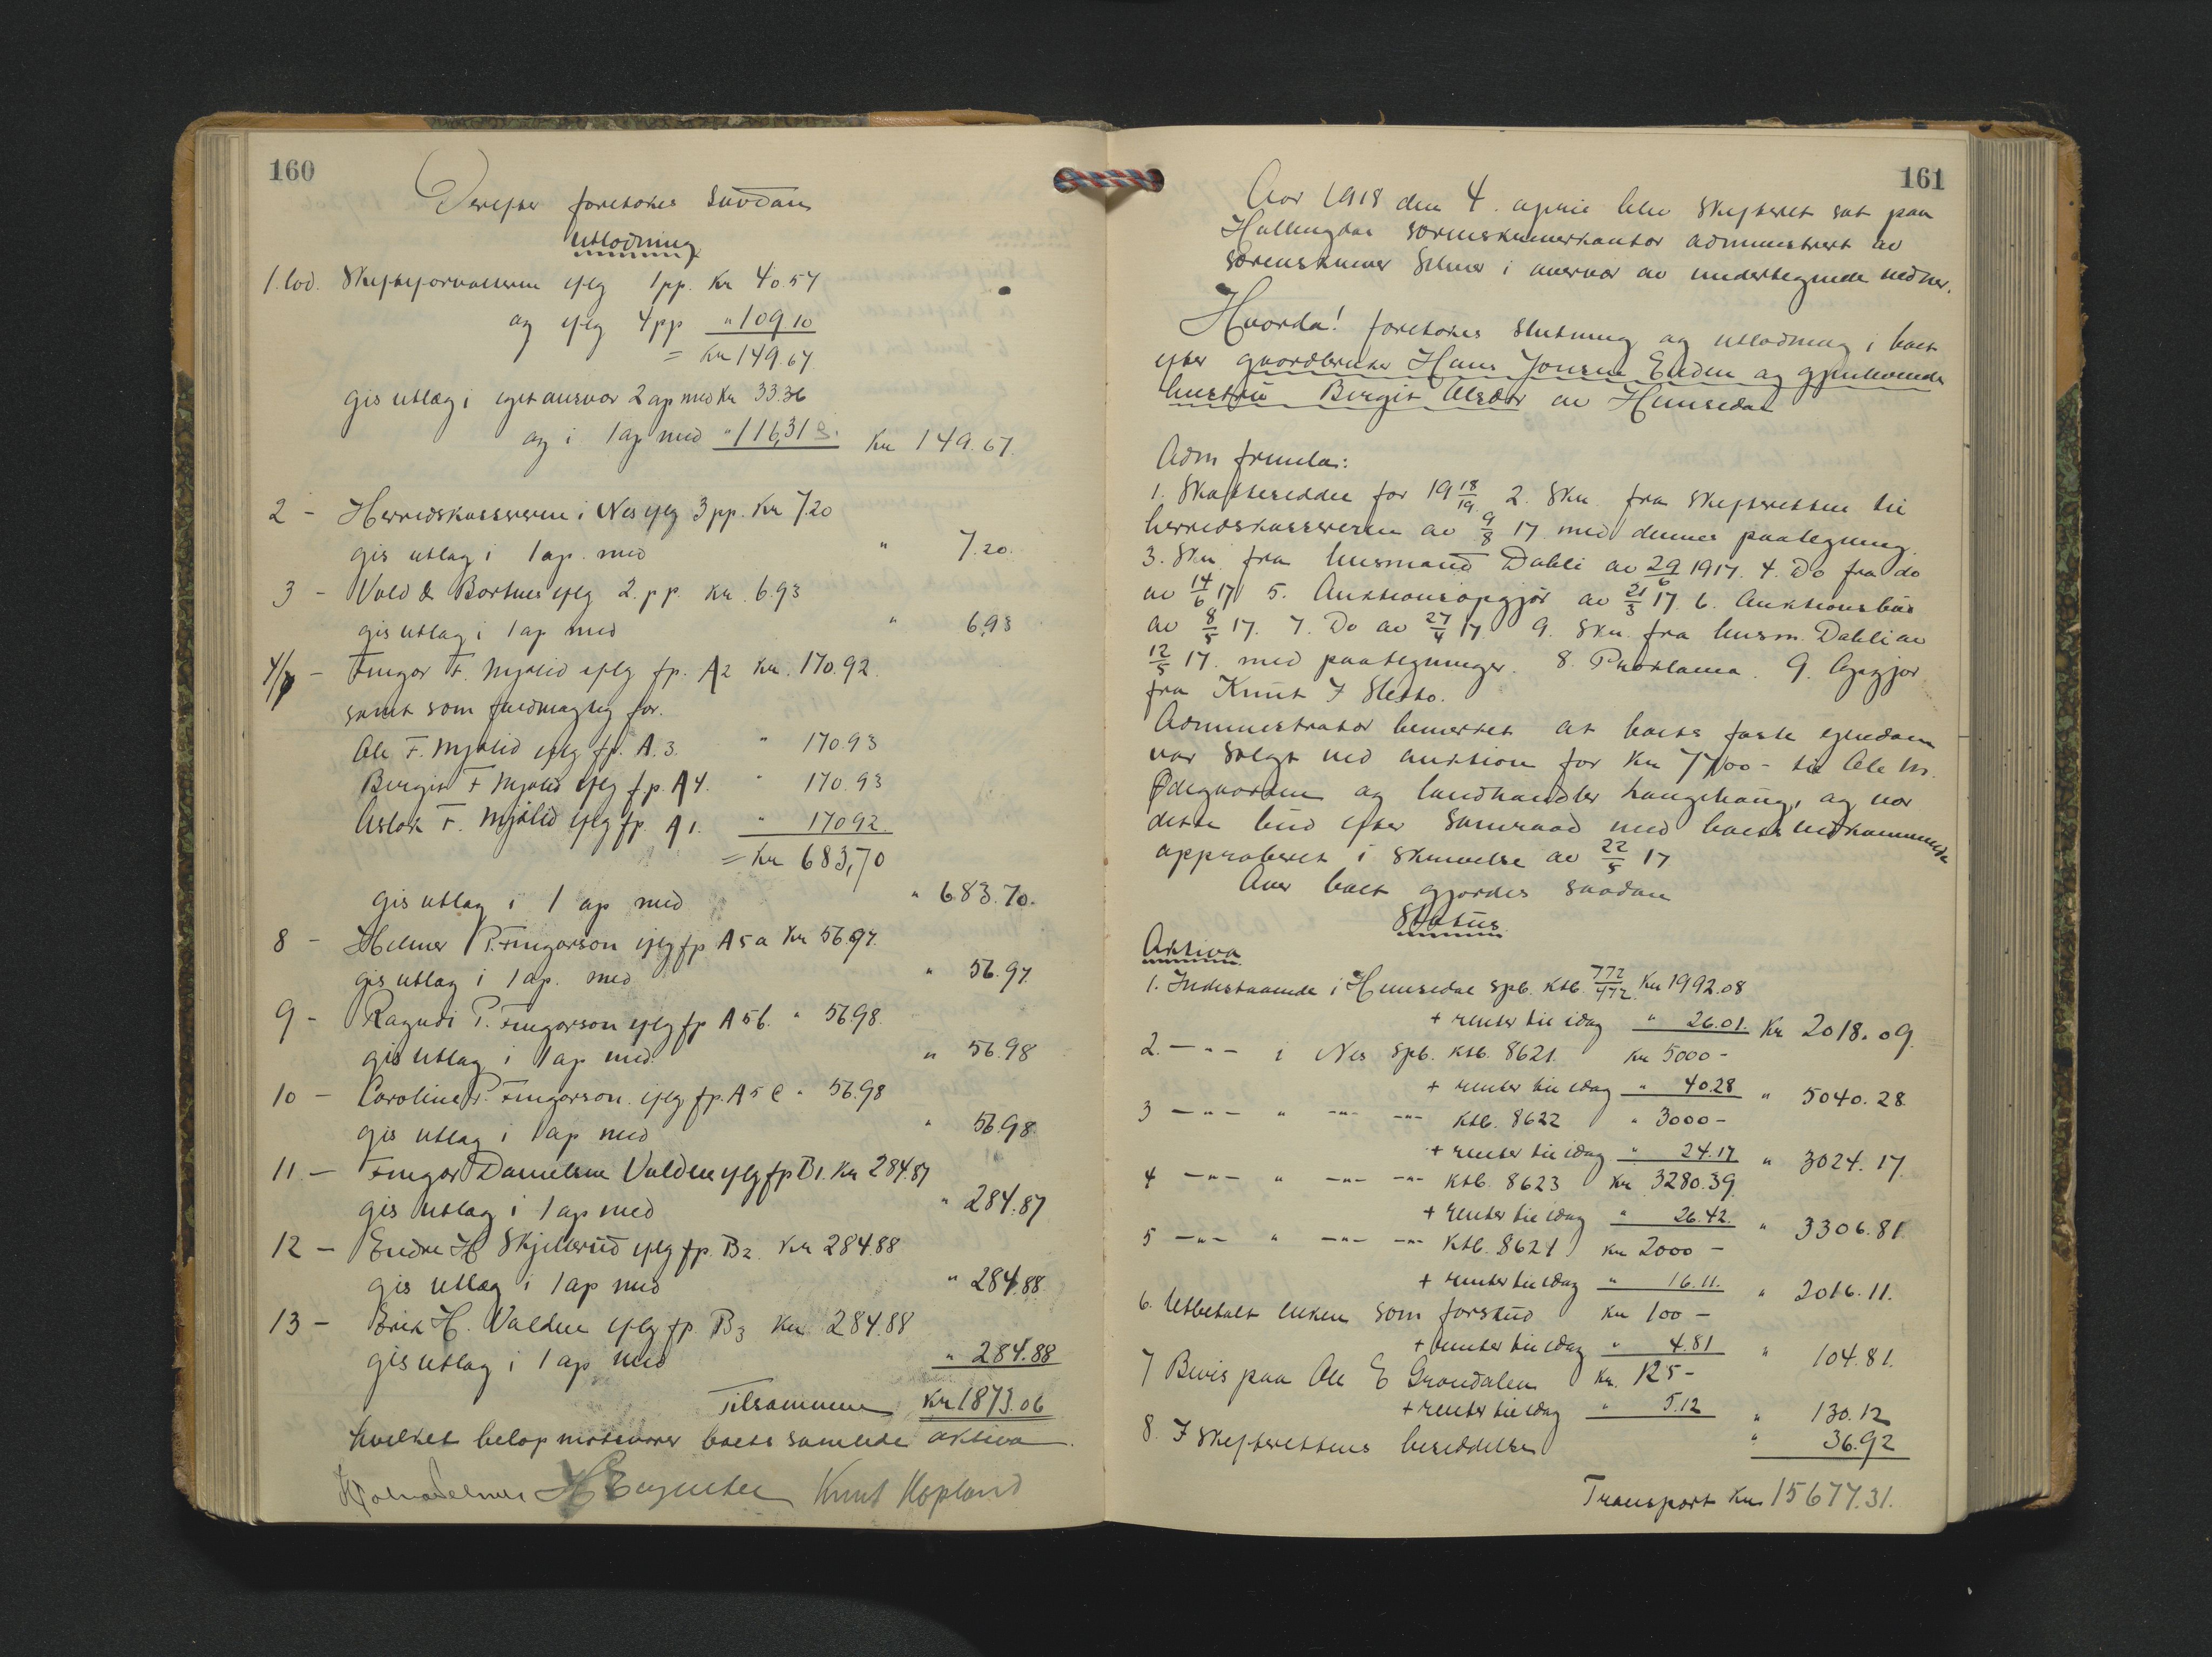 160
Derefter foretokes saadan
utlodning
1. lod. Skifteforvalteren iflg 1pp. Kr 40.57
og iflg 4pp " 109 10
= Kr 149.67.
gis utlæg i eget ansvar 2 ap med Kr 33.36
og i 1 ap med " 116,31 Kr 149.67.
2 - Herredskassereren i Nes iflg 3 pp. Kr 7.20
gis utlæg i 1 ap. med " 7.20.
3 - Vold & Bortnes iflg 2. pp. Kr. 6.93
gis utlæg i 1 ap med " 6,93
4/7 - Fingar F. Mjølid iflg fp. A2 Kr. 170.92.
samt som fuldmægtig for.
Ole F. Mjølid iflg fp. A.3. " 170.93
Bergit F Mjølid iflg fp. A4. " 170.93
Aslak F. Mjølid iflg fp. A1. " 170 92.
= Kr 683,70
gis utlæg i 1 ap med " 683.70.
8 - Helmer P. Fingarson iflg fp A5a Kr 56.97.
gis utlæg i 1 ap. med " 56.97.
9 - Ragndi P. Fingarson iflg fp A5b. " 56.98.
gis utlæg i 1 ap med " 56.98
10 - Caroline P. Fingarson iflg fp. A5c " 56.98
gis utlæg i 1 ap med " 56.98
11 - Fingar Danielsen Valden iflg fp B1. Kr 284.87
gis utlæg i 1 ap med " 284.87
12 - Endre H Skjellerud iflg fp. B2. Kr 284.88
gis utlæg i 1 ap med " 284.88
13 - Erik H. Valden iflg fp. B3 Kr 284.88
gis utlæg i 1 ap med " 284.88
Tilsammen Kr 1873.06
hvilket beløp motsvarer boets samlede aktiva.
Knut Kopland
161
Aar 1918 den 4. april blev skifteret sat paa
Hallingdal sorenskriverkontor administrert av
sorenskriver Selmer i nærvær av undertegnede vidner.
Hvorda! foretokes slutning og utlodning i boet
efter gaardbruker Hans Jonsen Eiden og gjenlevende
hustru Birgit Olsdtr av Hemsedal
Adm fremla:
1. Skatteseddel for 19 18/19. 2. Skr. fra skifteretten til
herredskassereren av 9/8 17 med dennes paategning.
3. Skr. fra lensmand Dahli av 29/6 1917. 4. Do fra do
av 14/6 17 5. Auktionsopgjør av 21/3 17 6. Auktionsbud
av 8/5 17. 7. Do av 27/4 17. 9. Skr. fra lensm. Dahli av
12/5 17. med paategninger. 8. Proklama. 9. Opgjør
fra Knut J Sletto.
Administrator bemerket at boets faste eiendom
var solgt ved auktion for Kr 7700 - til Ole M.
Ødegaarden og landhandler Langehaug, og var
dette bud efter samraad med boets vedkommende
approberet i skrivelse av 22/5 17
Over boet gjordes saadan
Status
Aktiva
1. Indestaaende i Hemsedal Spb. Ktb. 772/472 Kr 1992.08
+ renter til idag " 26.01. Kr 2018.09.
2. - " - i Nes Spb. Ktb. 8621. Kr 5000 -
+ renter til idag " 40.28 " 5040.28.
3 - " - " - " - - " - Ktb. 8622 " 3000 -
+ renter til idag " 24.17 " 3024.17.
4 - " - " - " - - " - Ktb. 8623 Kr 3280.39
+ renter til idag " 26.42. " 3306.81.
5 - " - " - " - - " - Ktb. 8624 Kr 2000 -
+ renter til idag " 16.11. " 2016.11.
6. Utbetalt enken som forskud Kr 100 -
+ renter til idag " 4.81 " 104.81.
7 Bevis paa Ole E Grøndalen Kr. 125 -
+ renter til idag " 5.12 " 130.12
8. I skifterettens besiddelse " 36.92
Transport Kr 15677.31.